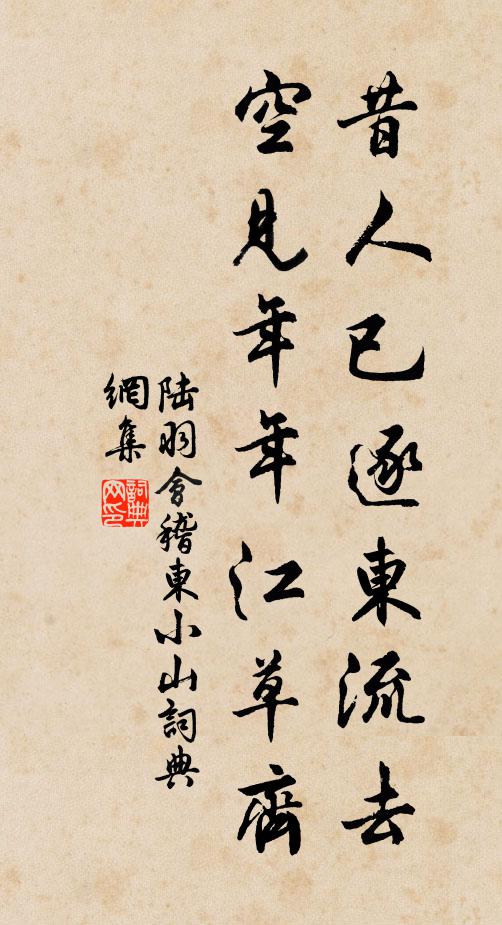 昔人已逐東流去
空見年年江草齊
陸羽會稽東小山詞典
網集
詞典
网印